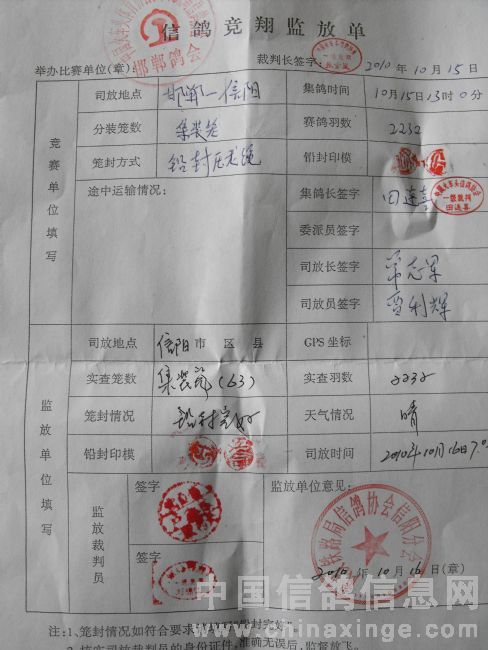 信鸽竞翔监放单
举办比赛单位(章): 裁判长签字: 2010年10月15日
邯郸鸽会
竞赛单位填写
司放地点 邯郸—信阳 集鸽时间 10月15日13时0分
分装笼数 集装笼 赛鸽羽数 2232
笼封方式 铅封 铅封印模
途中运输情况: 集鸽长签字 田连喜
一级裁判
田连喜
委派员签字
司放长签字
司放员签字 贾利辉
监放单位填写
司放地点 信阳市 区县 GPS坐标
实查笼数 集装笼(63) 实查羽数 2232
笼封情况 铅封完好 天气情况 晴
铅封印模 司放时间 2010年10月16日7:0
监放裁判员 签字 监放单位意见:
签字
铁路局信鸽协会信阳分会
2010年10月16日(章)
注:1、笼封情况如符合要求
2、核实司放裁判员的身份证件,准确无误后,监督放飞。
中国信鸽信息网
www.chinaxinge.com